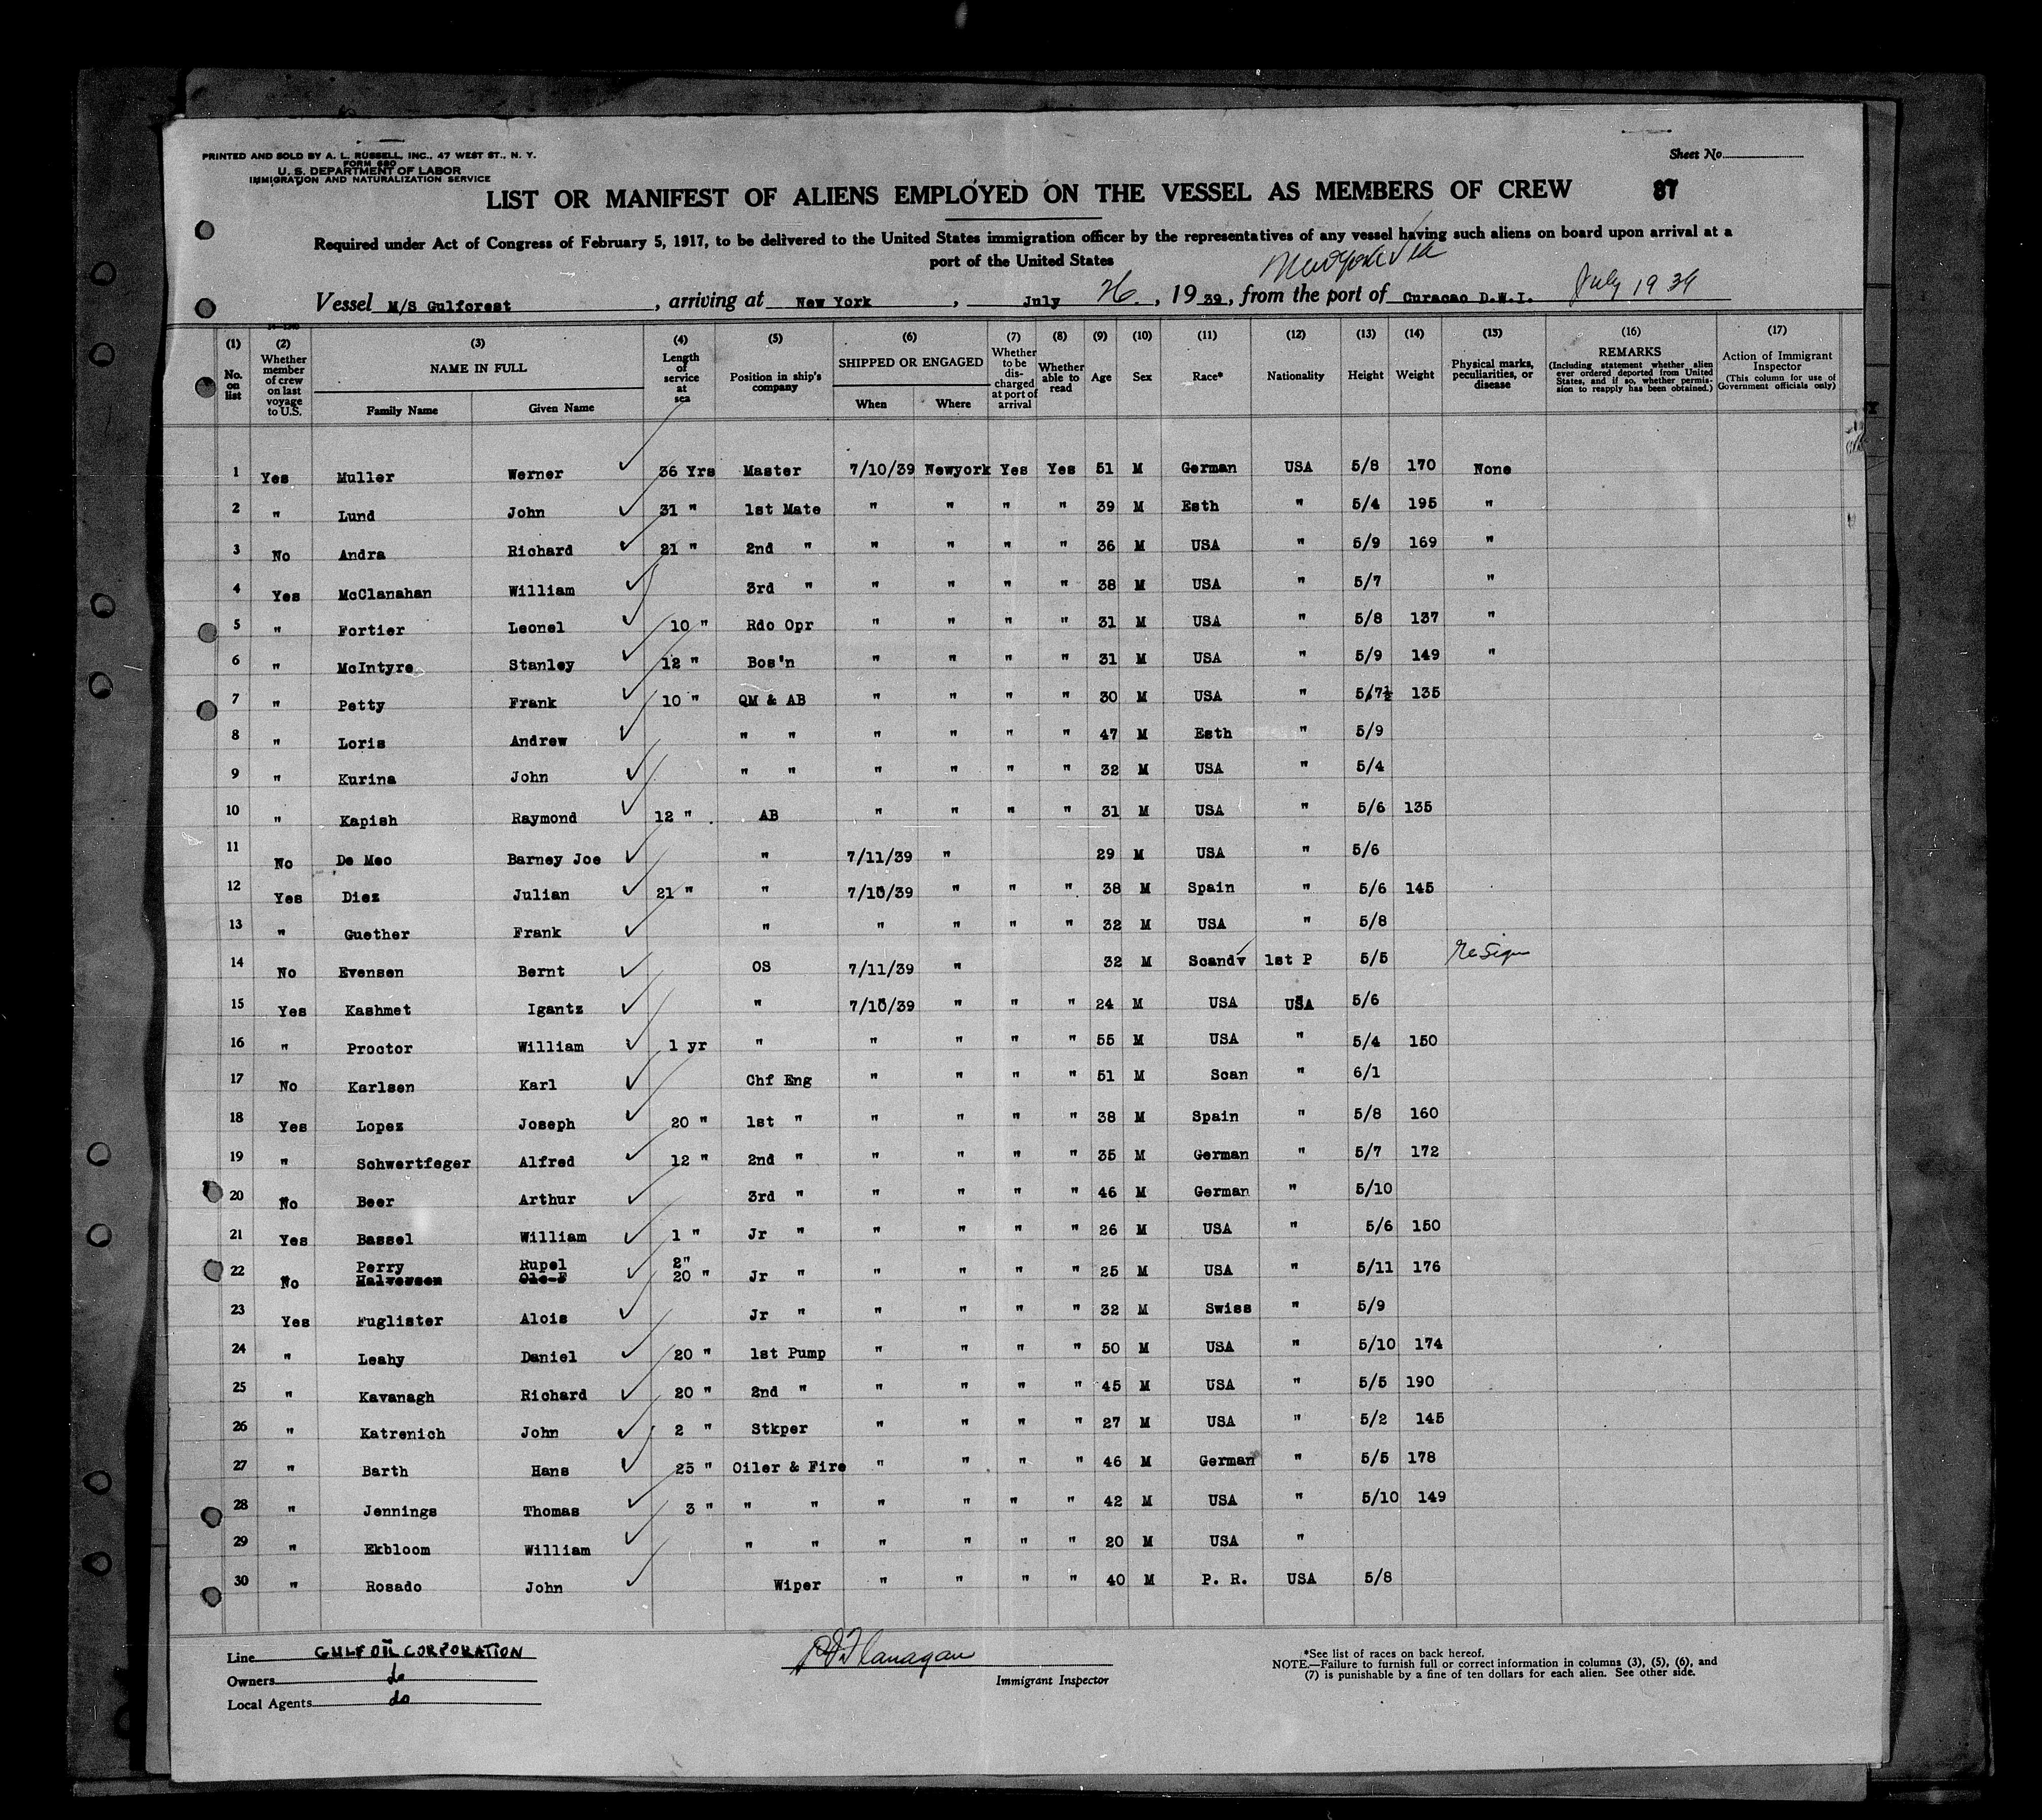 PRINTED AND SOLD BY A. L. RUSSELL, INC., 47 WEST ST., N. Y.
FORM 680
U. S. DEPARTMENT OF LABOR
IMMIGRATION AND NATURALIZATION SERVICE
Sheet No.
LIST OR MANIFEST OF ALIENS EMPLOYED ON THE VESSEL AS MEMBERS OF CREW 87
Required under Act of Congress of February 5, 1917, to be delivered to the United States immigration officer by the representatives of any vessel having such aliens on board upon arrival at a
port of the United States
Vessel M/S Gulfcrest, arriving at New York, July 26, 1939, from the port of Curacao D.W.I. July 1939
(1) (2) (3) (4) (5) (6) (7) (8) (9) (10) (11) (12) (13) (14) (15) (16) (17)
No. on list
Whether member of crew on last voyage to U.S.
NAME IN FULL
Family Name Given Name
Length of service at sea
Position in ship's company
SHIPPED OR ENGAGED
When Where
Whether to be discharged at port of arrival
Whether able to read
Age Sex Race* Nationality Height Weight
Physical marks, peculiarities, or disease
REMARKS
(Including statement whether alien ever ordered deported from United States, and if so, whether permission to reapply has been obtained.)
Action of Immigrant Inspector
(This column for use of Government officials only)
1 Yes Muller Werner 36 Yrs Master 7/10/39 Newyork Yes Yes 51 M German USA 5/8 170 None
2 " Lund John 31 " 1st Mate " " " " 39 M Esth " 5/4 195 "
3 No Andra Richard 21 " 2nd " " " " " 36 M USA " 5/9 169 "
4 Yes McClanahan William 3rd " " " " " 38 M USA " 5/7 "
5 " Fortier Leonel 10 " Rdo Opr " " " " 31 M USA " 5/8 137 "
6 " McIntyre Stanley 12 " Bos'n " " " " 31 M USA " 5/9 149 "
7 " Petty Frank 10 " QM & AB " " " " 30 M USA " 5/7½ 135
8 " Loris Andrew " " " " " " 47 M Esth " 5/9
9 " Kurina John " " " " " " 32 M USA " 5/4
10 " Kapish Raymond 12 " AB " " " " 31 M USA " 5/6 135
11 No De Meo Barney Joe " 7/11/39 " 29 M USA " 5/6
12 Yes Diez Julian 21 " " 7/10/39 " " " 38 M Spain " 5/6 145
13 " Guether Frank " " " " " 32 M USA " 5/8
14 No Evensen Bernt OS 7/11/39 " 32 M Scandv 1st P 5/5 ReSign
15 Yes Kashmet Igantz " 7/10/39 " " " 24 M USA USA 5/6
16 " Proctor William 1 yr " " " " " 55 M USA " 5/4 150
17 No Karlsen Karl Chf Eng " " " " 51 M Scan " 6/1
18 Yes Lopez Joseph 20 " 1st " " " " " 38 M Spain " 5/8 160
19 " Schwertfeger Alfred 12 " 2nd " " " " " 35 M German " 5/7 172
20 No Beer Arthur 3rd " " " " " 46 M German " 5/10
21 Yes Bassel William 1 " Jr " " " " " 26 M USA " 5/6 150
Perry Rupel 2"
22 No Halversen Ole F 20 " Jr " " " " " 25 M USA " 5/11 176
23 Yes Fuglister Alois Jr " " " " " 32 M Swiss " 5/9
24 " Leahy Daniel 20 " 1st Pump " " " " 50 M USA " 5/10 174
25 " Kavanagh Richard 20 " 2nd " " " " " 45 M USA " 5/5 190
26 " Katrenich John 2 " Stkper " " " " 27 M USA " 5/2 145
27 " Barth Hans 25 " Oiler & Fire " " " " 46 M German " 5/5 178
28 " Jennings Thomas 3 " " " " " " " 42 M USA " 5/10 149
29 " Ekbloom William " " " " " " 20 M USA "
30 " Rosado John Wiper " " " " 40 M P. R. USA 5/8
Line GULF OIL CORPORATION
Owners do
Local Agents do
Flanagan
Immigrant Inspector
*See list of races on back hereof.
NOTE.—Failure to furnish full or correct information in columns (3), (5), (6), and
(7) is punishable by a fine of ten dollars for each alien. See other side.